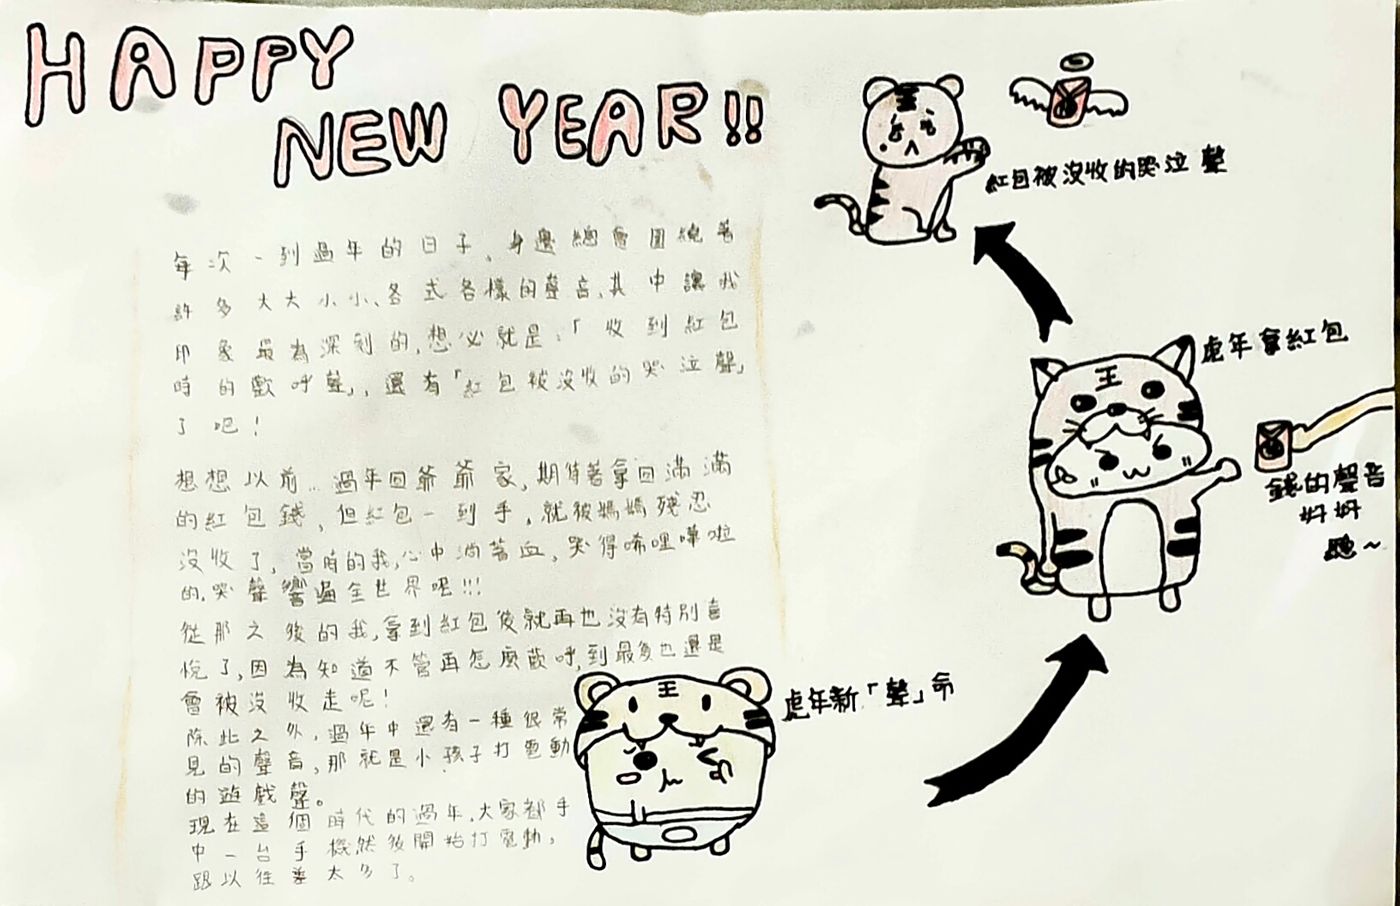 HAPPY
NEW YEAR!!
每次一到過年的日子、身邊總會圍繞著
許多大大小小、各式各樣的聲音,其中讓我
印象最為深刻的,想必就是:「收到紅包
時的歡呼聲」,還有「紅包被沒收的哭泣聲」
了吧!
想想以前…過年回爺爺家,期待著拿回滿滿
的紅包錢,但紅包一到手,就被媽媽殘忍
沒收了,當時的我,心中淌著血,哭得唏哩嘩啦
的,哭聲響遍全世界呢!!!
從那之後的我,拿到紅包後就再也沒有特別喜
悅了,因為知道不管再怎麼歡呼,到最多也還是
會被沒收走呢!
除此之外,過年中還有一種很常
見的聲音,那就是小孩子打電動
的遊戲聲。
現在這個時代的過年,大家都手
中一台手機然後開始打電動,
跟以往差太多了。
紅包被沒收的哭泣聲
虎年拿紅包
錢的聲音
好好
聽~
虎年新「聲」命
王
王
王